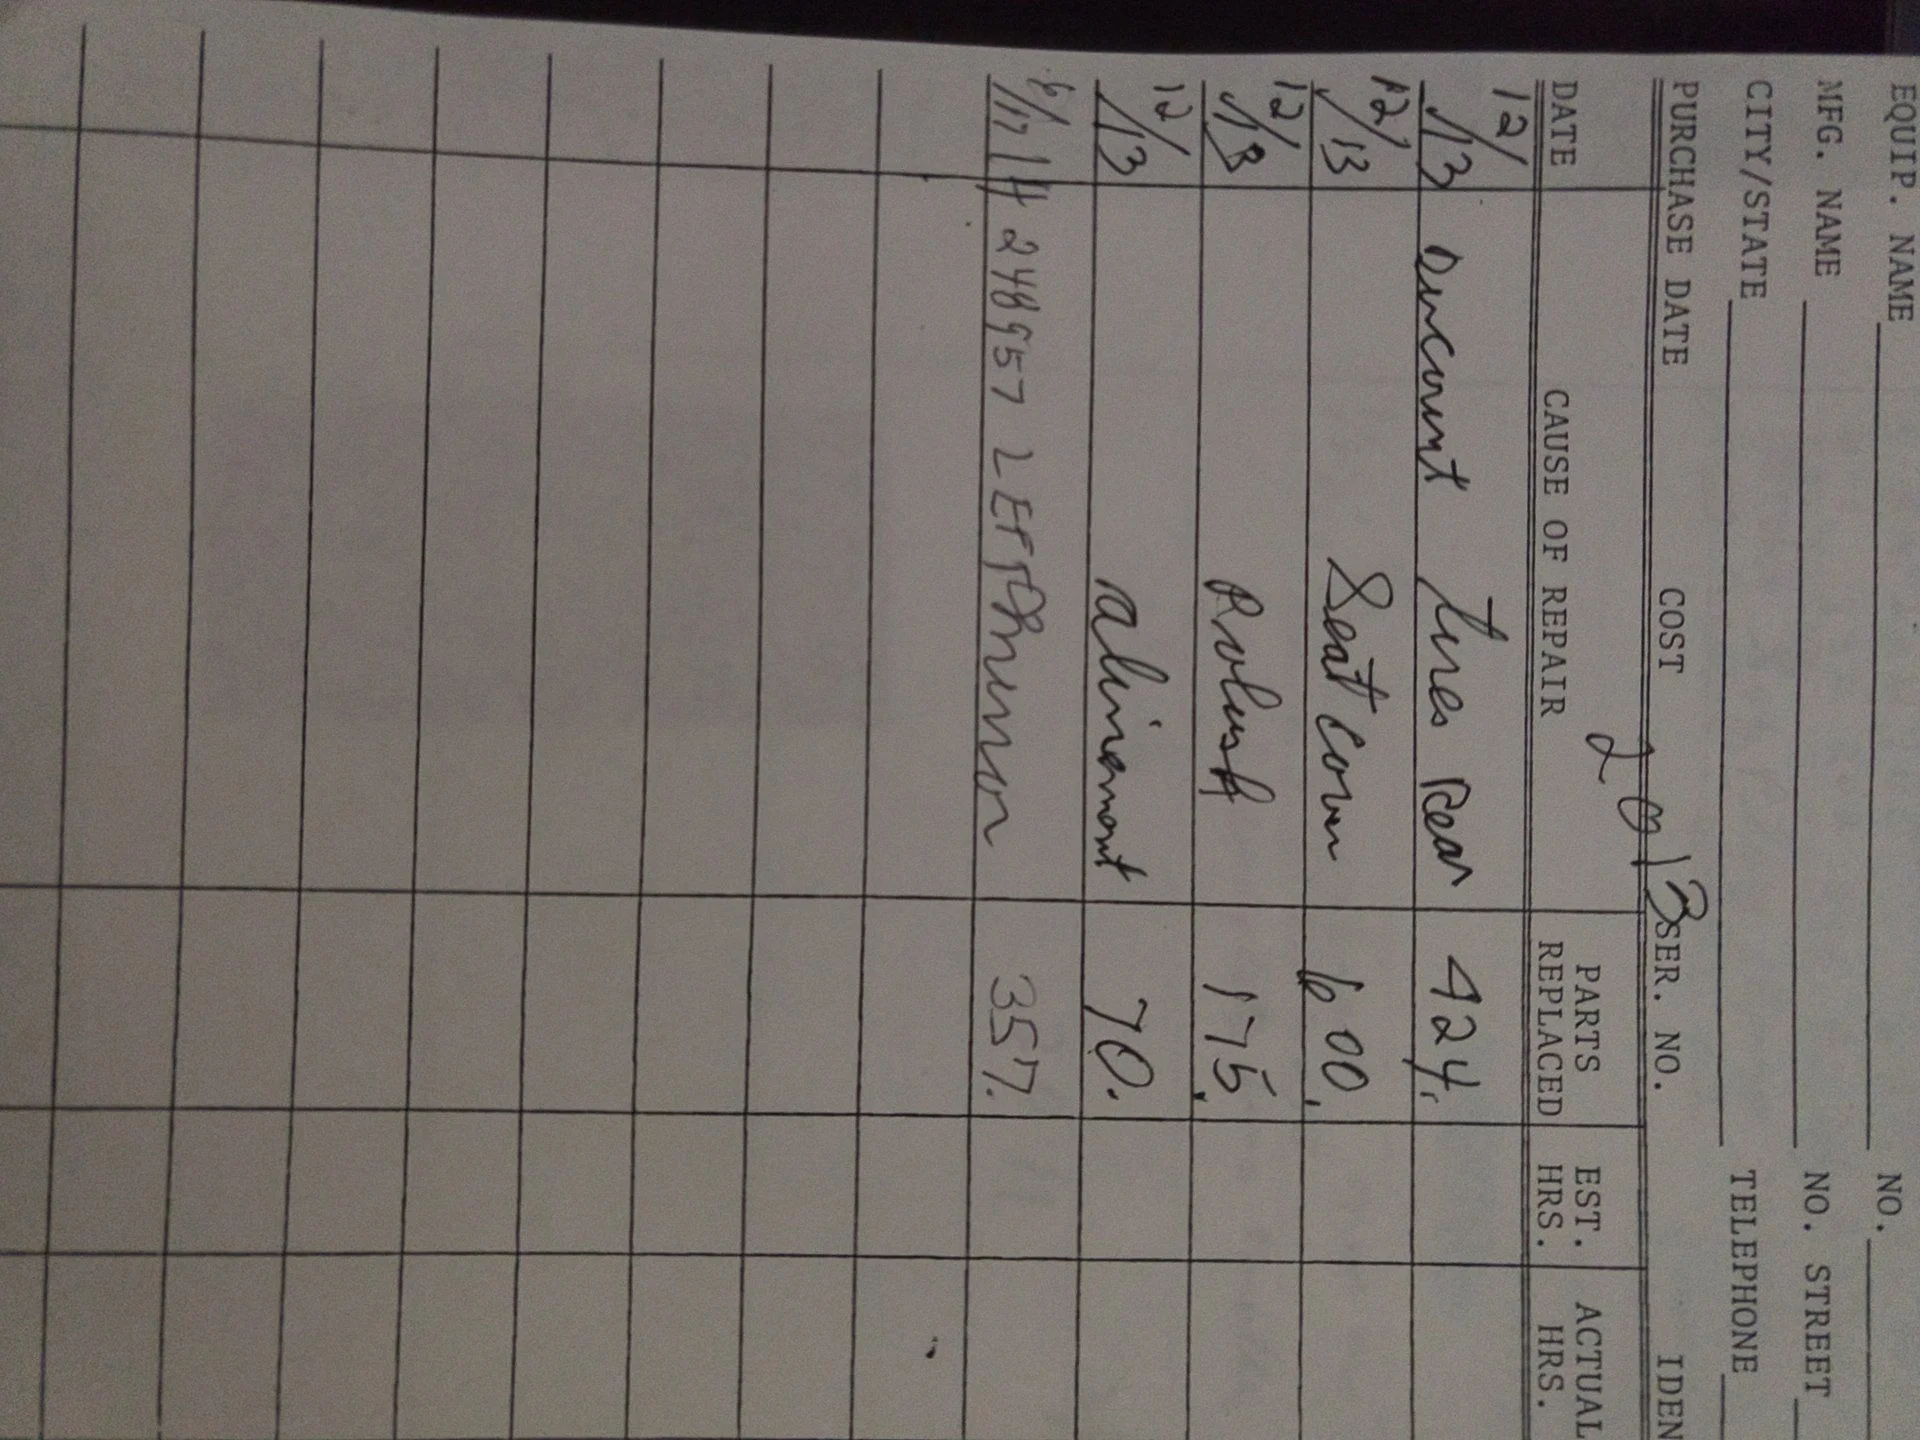 EQUIP. NAME NO.
MFG. NAME NO. STREET
CITY/STATE TELEPHONE
PURCHASE DATE COST 2013 SER. NO. IDEN
DATE CAUSE OF REPAIR PARTS REPLACED EST. HRS. ACTUAL HRS.
12/13 Discount tires Rear 424.
12/13 Seat Cover 600.
12/13 175.
12/13 alinemont 70.
6/17/14 248957 LEFT 357.